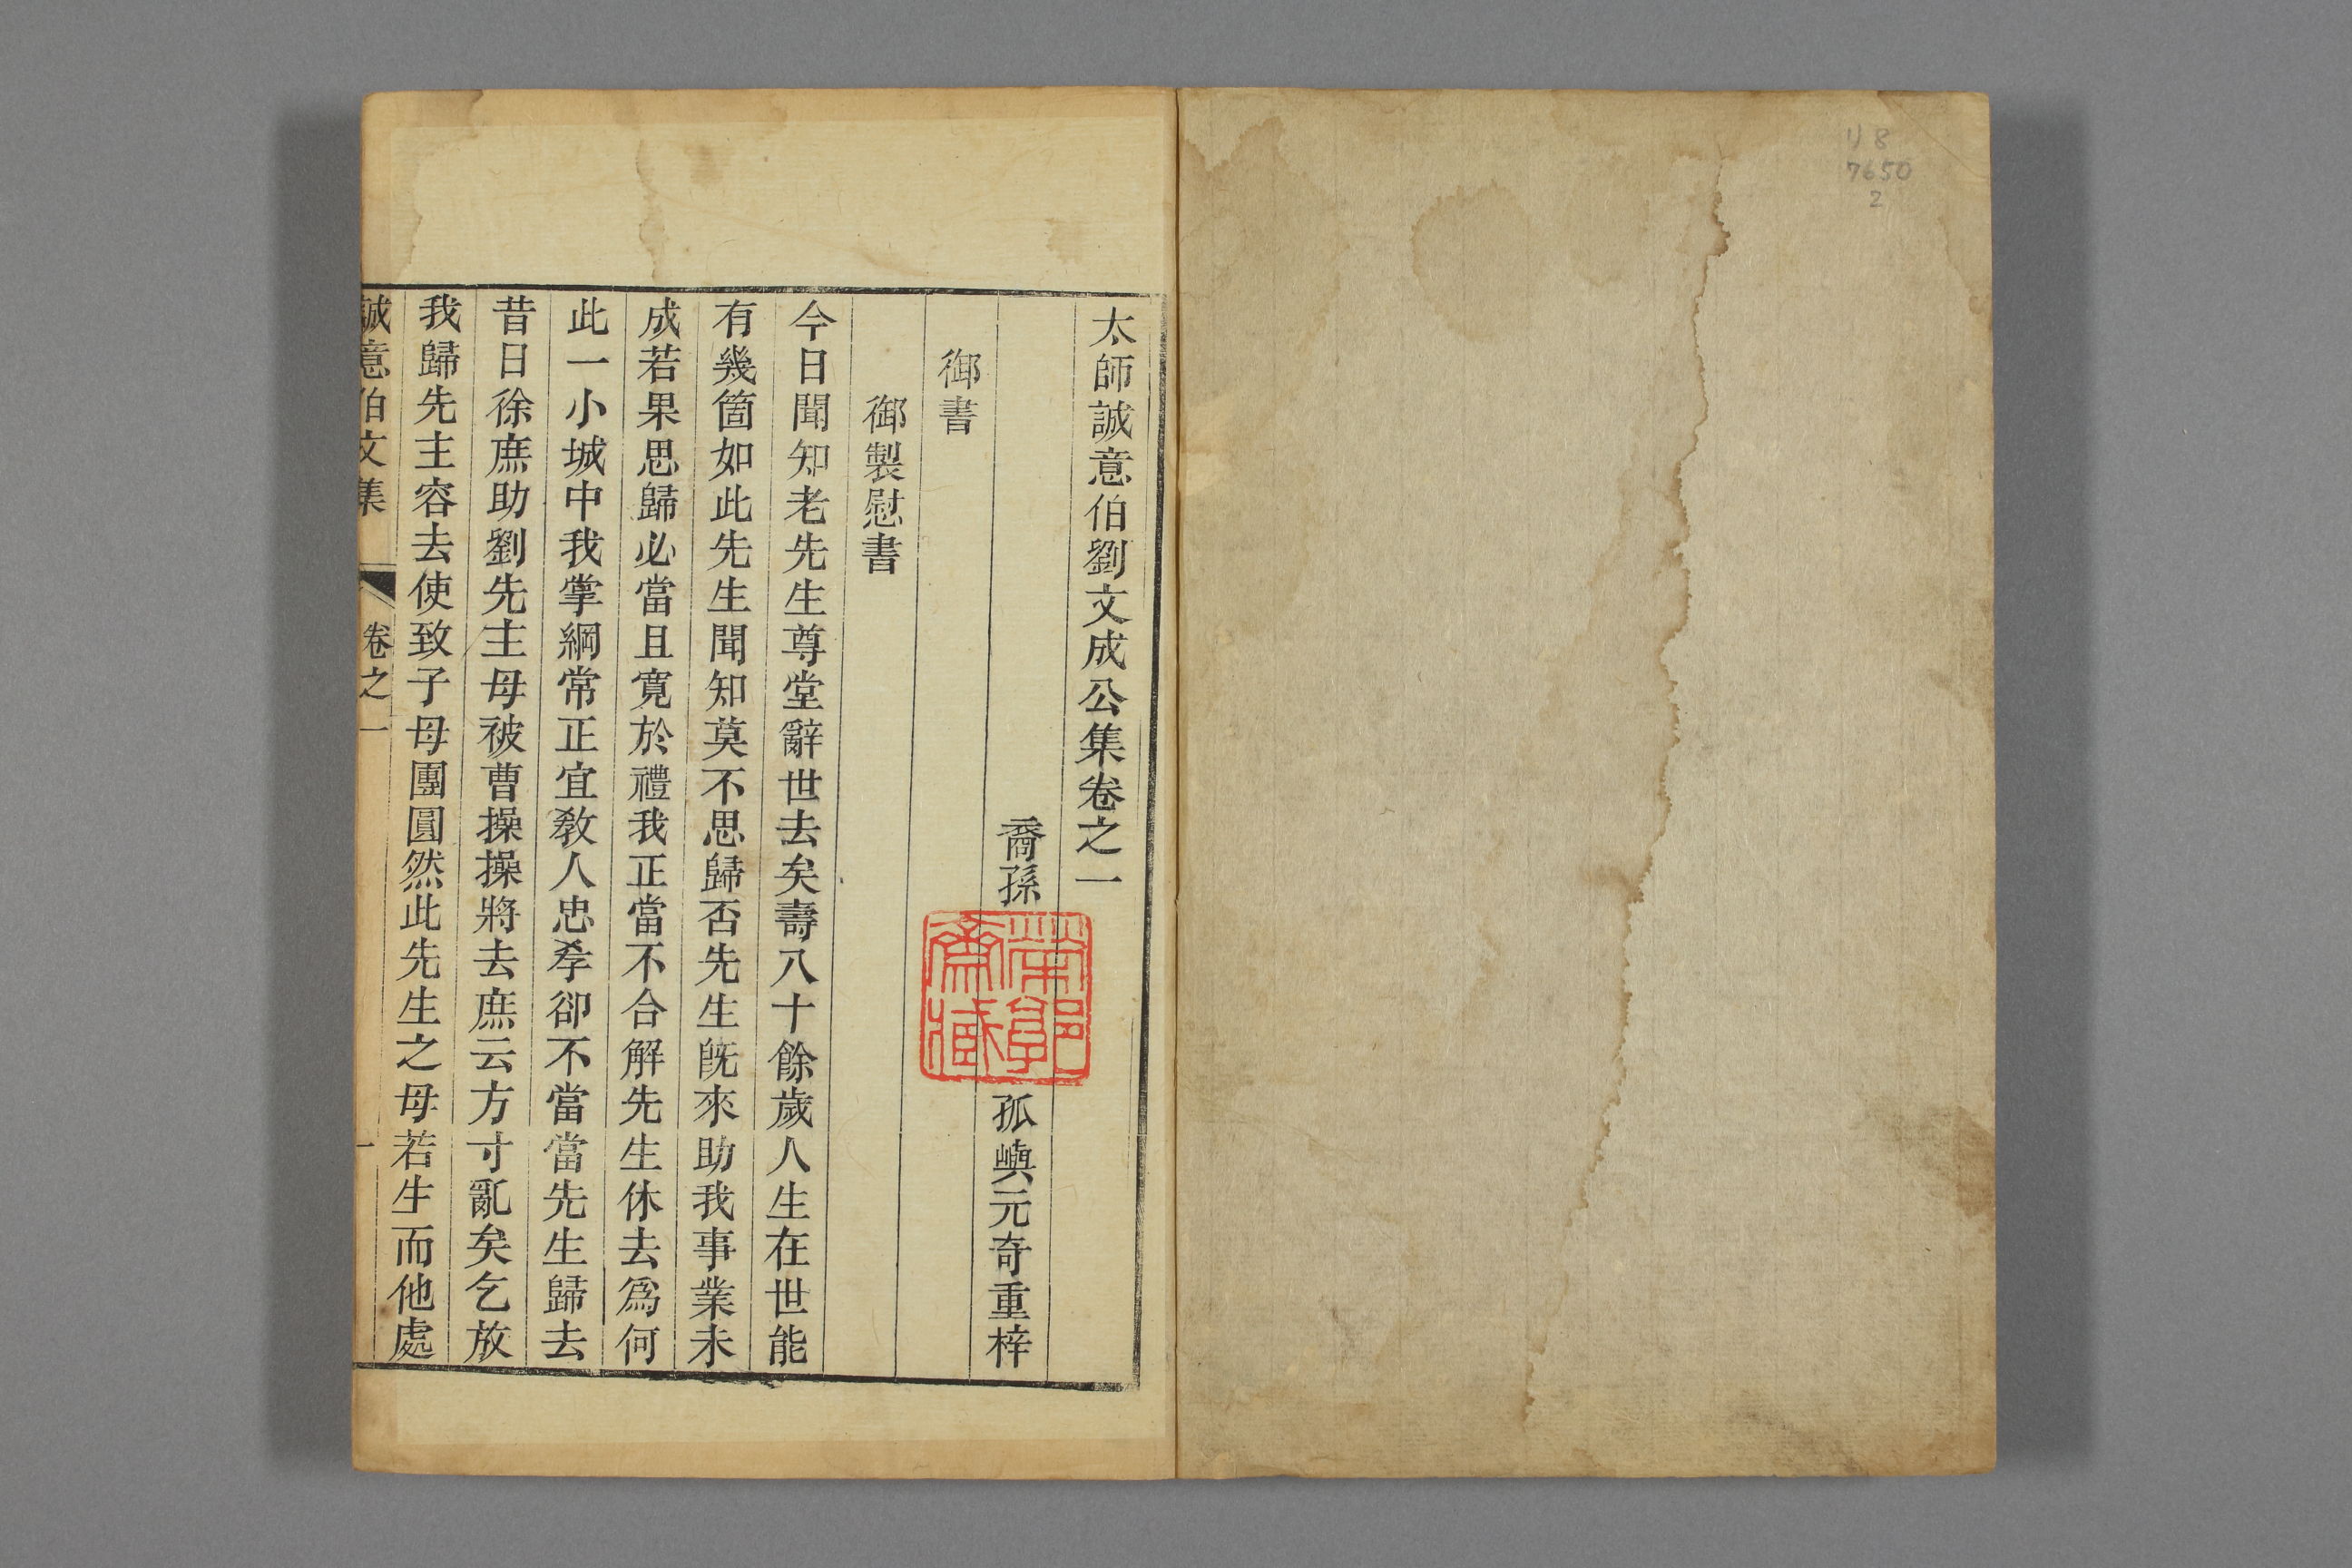 リ8
7650
2
太師誠意伯劉文成公集卷之一
裔孫　孤嶼元奇重梓
御書
御製慰書
今日聞知老先生尊堂辭世去矣壽八十餘歲人生在世能
有幾箇如此先生聞知莫不思歸否先生旣來助我事業未
成若果思歸必當且寬於禮我正當不合解先生休去爲何
此一小城中我掌綱常正宜敎人忠孝卻不當當先生歸去
昔日徐庶助劉先主母被曹操操將去庶云方寸亂矣乞放
我歸先主容去使致子母團圓然此先生之母若生而他處
誠意伯文集　卷之一　一